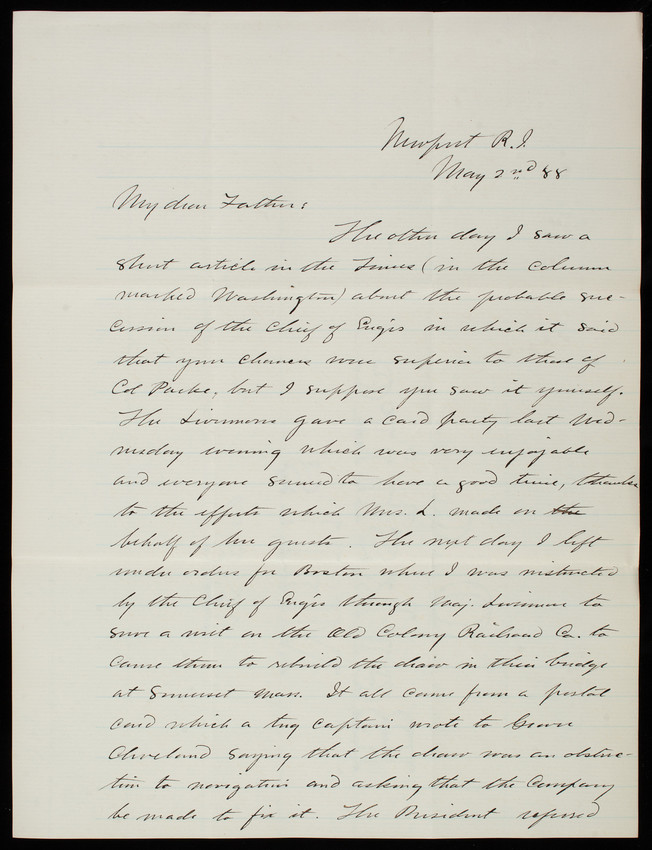 Newport R.I.
May 2nd 88
My dear Father:
The other day I saw a
short article in the Times (in the column
marked Washington) about the probable suc-
cession of the Chief of Eng'rs in which it said
that your chances were superior to those of
Col Parke, but I suppose you saw it yourself.
The Livermores gave a card party last Wed-
nesday evening which was very enjoyable
and everyone seemed to have a good time, thanks
to the efforts which Mrs. L. made on the
behalf of her guests. The next day I left
under orders for Boston where I was instructed
by the Chief of Eng'rs through Maj. Livermore to
serve a writ on the Old Colony Railroad Co. to
cause them to rebuild the draw in their bridge
at Somerset Mass. It all came from a postal
card which a tug captain wrote to Grover
Cleveland saying that the draw was an obstruc-
tion to navigation and asking that the Company
be made to fix it. The President referred